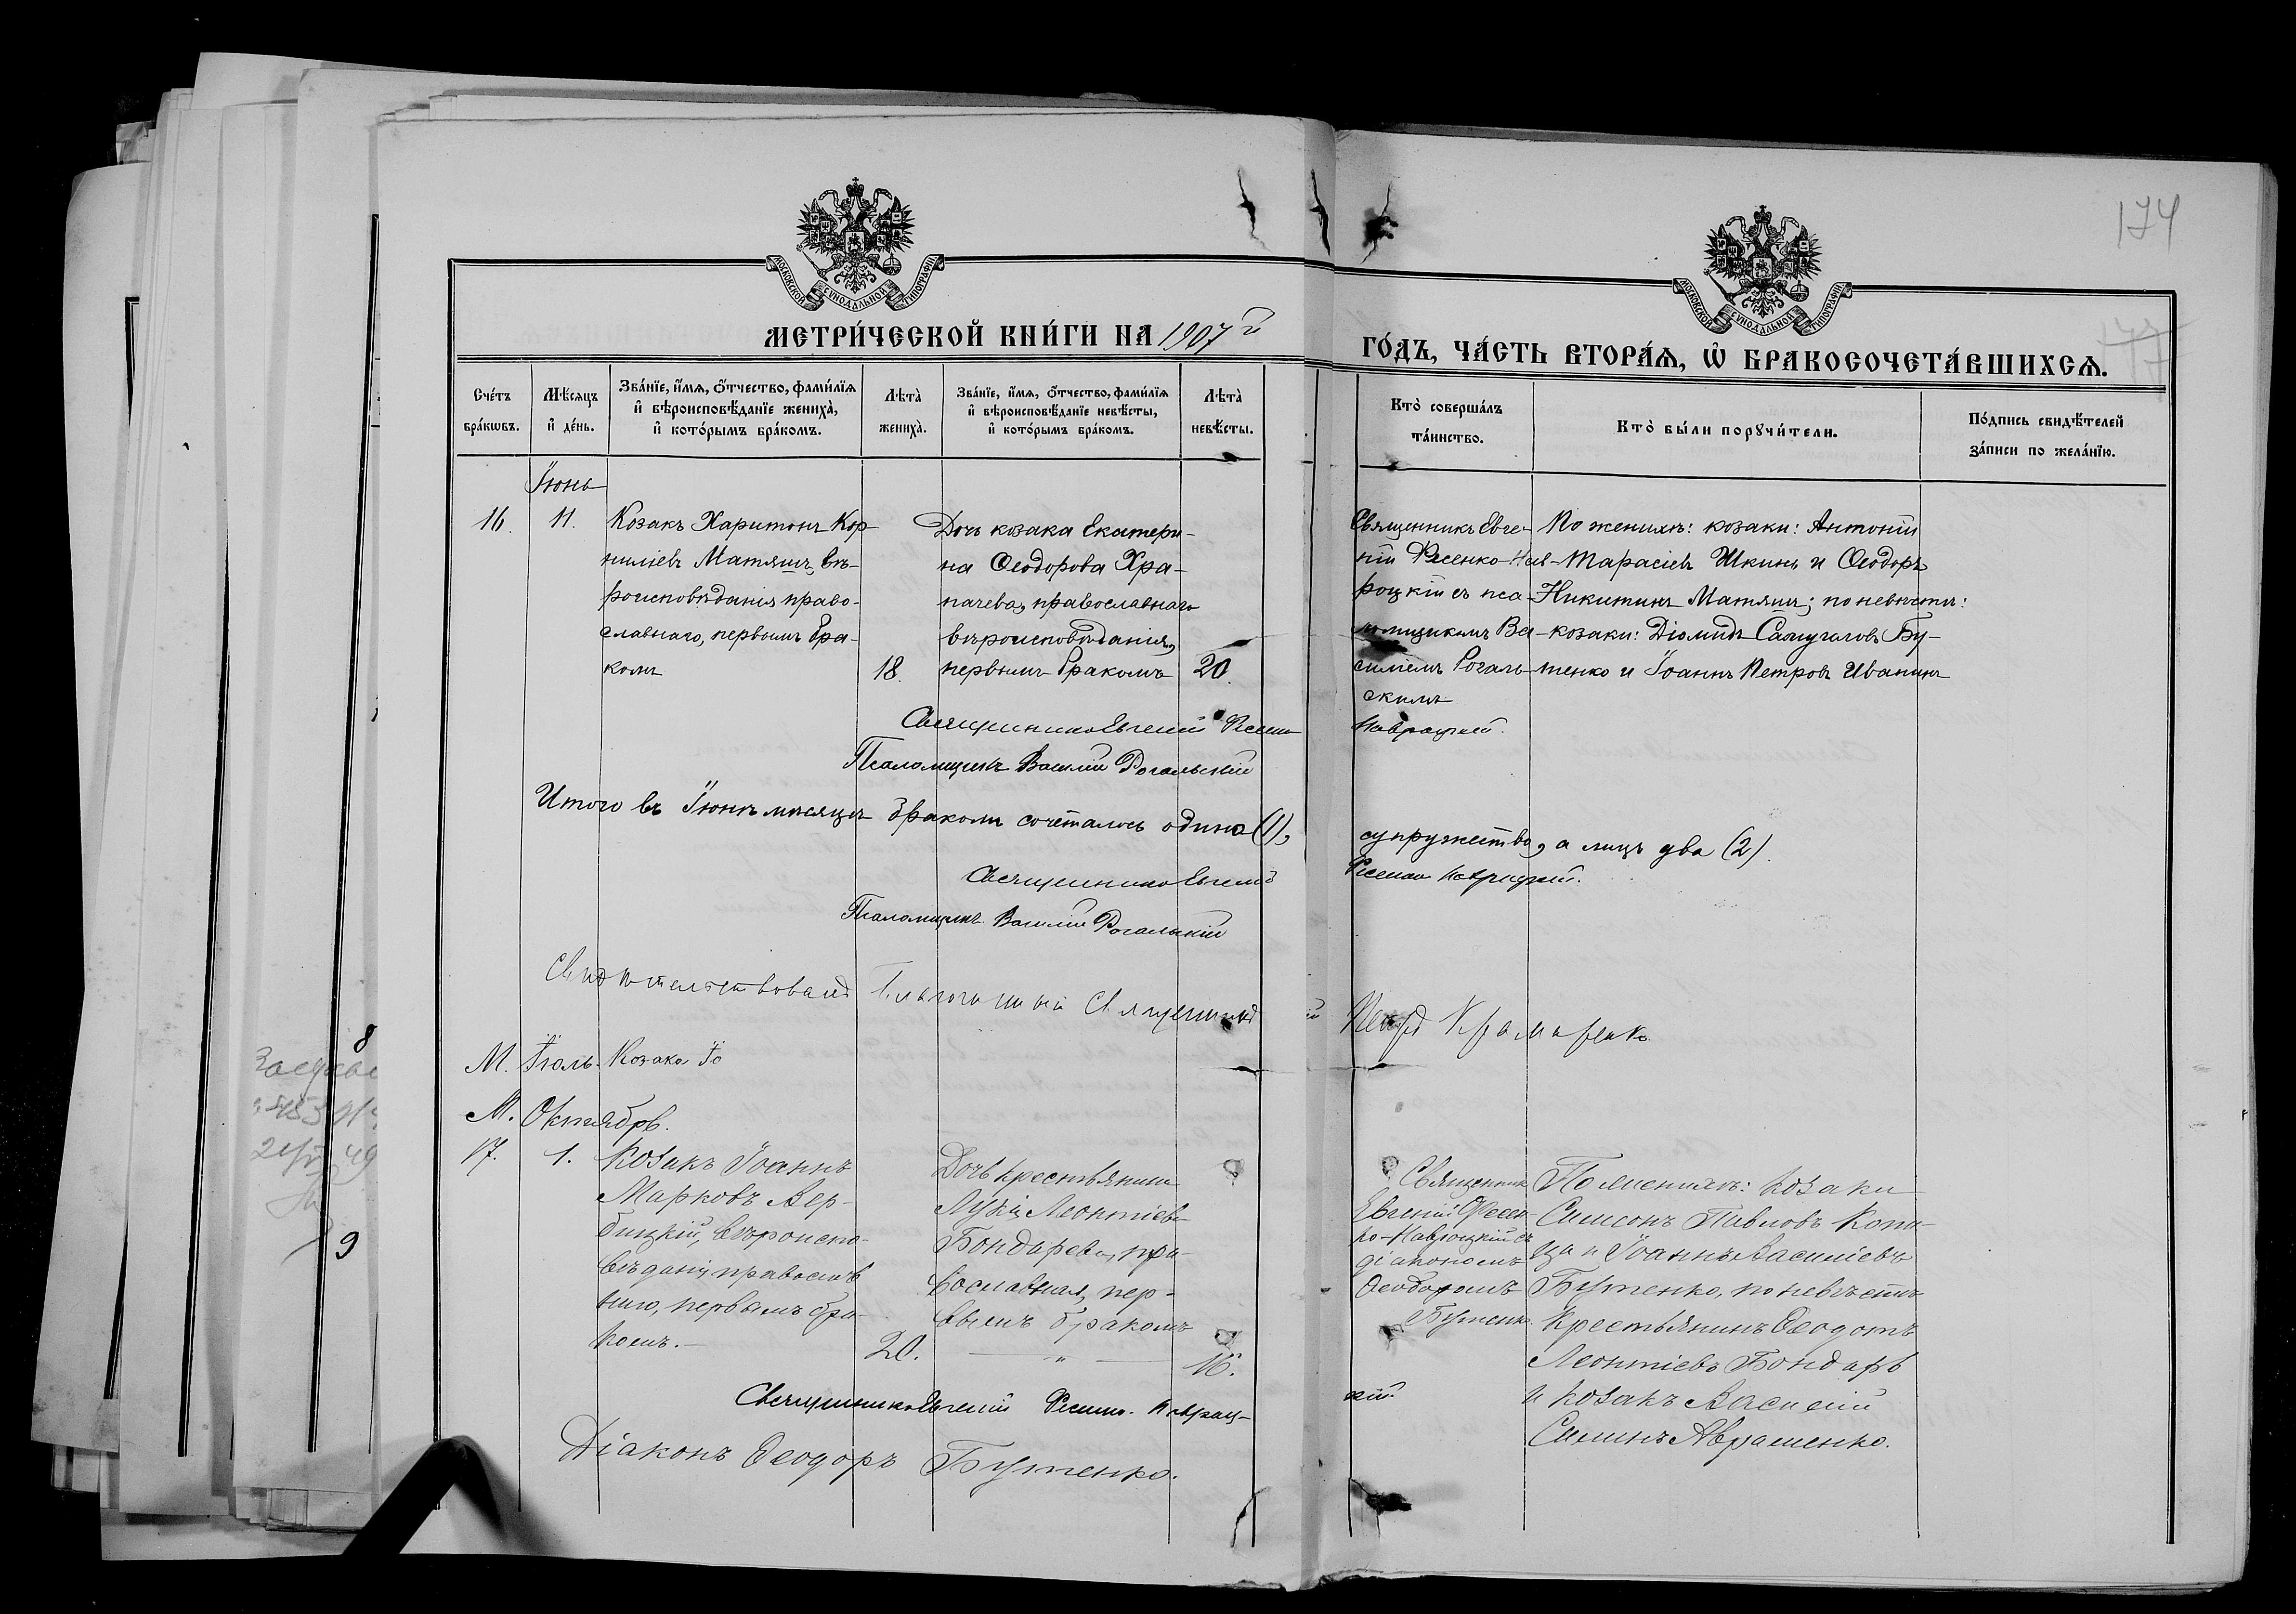 174
МОСКОВСКОЙ СѴНОДАЛЬНОЙ ТИПОГРАФІИ
МОСКОВСКОЙ СѴНОДАЛЬНОЙ ТИПОГРАФІИ
МЕТРИ́ЧЕСКОЙ КНИ́ГИ НА 1907 й
ГО́ДЪ, ЧА́СТЬ ВТОРА́Ѧ, Ѡ БРАКОСОЧЕТА́ВШИХСѦ.
Сче́тъ бра́кѡвъ.
Мѣ́сѧцъ и҆ де́нь.
Зва́нїе, и҆́мѧ, ѻ҆́тчество, фами́лїѧ и҆ вѣроисповѣ́данїе жениха̀, и҆ кото́рымъ бра́комъ.
Лѣ́та̀ жениха̀.
Зва́нїе, и҆́мѧ, ѻ҆́тчество, фами́лїѧ и҆ вѣроисповѣ́данїе невѣ́сты, и҆ кото́рымъ бра́комъ.
Лѣ́та̀ невѣ́сты.
Кто̀ соверша́лъ та́инство.
Кто̀ бы́ли порꙋчи́тели.
По́дпись свидѣ́телей за́писи по жела́нїю.
Іюнь
16. 11.
Козакъ Харитонъ Кор-
ниліевъ Матяшъ, вѣ-
роисповѣданія право-
славнаго, первымъ бра-
комъ
18.
Дочь козака Екатери-
на Ѳеодорова Хра-
пачева, православнаго
вѣроисповѣданія,
первымъ бракомъ
20.
Священникъ Евге-
ній Фесенко-Нав-
роцкій съ пса-
ломщикомъ Ва-
силіемъ Рогаль-
скимъ
По женихѣ: козаки: Антоній
Тарасіевъ Шкинь и Ѳеодоръ
Никитинъ Матяшъ; по невѣстѣ:
козаки: Діомидъ Бу-
тенко и Іоаннъ Петровъ Иванин
Священникъ Евгеній Фесенко
Навроцкій.
Псаломщикъ Василій Рогальскій
Итого въ Іюнѣ мѣсяцѣ бракомъ сочеталось одино (1),
супружество, а лицъ два (2).
Священникъ Евгеній
Фесенко Навроцкій.
Псаломщикъ Василій Рогальскій
Свидѣтельствовалъ Благочинный Священникъ
Петръ Крамаренко
М. Іюль. Козакъ Іо
М. Октябрь.
17. 1.
Козакъ Іоаннъ
Марковъ Вер-
бицкій, вѣроиспо-
вѣданія православ
наго, первымъ бра-
комъ.
20.
Дочь крестьянина
Лукія Леонтіева
Бондарева, пра-
вославная, пер-
вымъ бракомъ
16.
Священникъ
Евгеній Фесен-
ко-Навроцкій съ
діакономъ
Ѳеодоромъ
Бутенко
По женихѣ: козаки
Симеонъ Павловъ Копи-
ца и Іоаннъ Василіевъ
Бутенко, по невѣстѣ
крестьянинъ Ѳеодотъ
Леонтіевъ Бондарь
и козакъ Василій
Симинъ Авраменко.
Священникъ Евгеній Фесенко-Навроц-
кій.
Діаконъ Ѳеодоръ Бутенко.
8
9